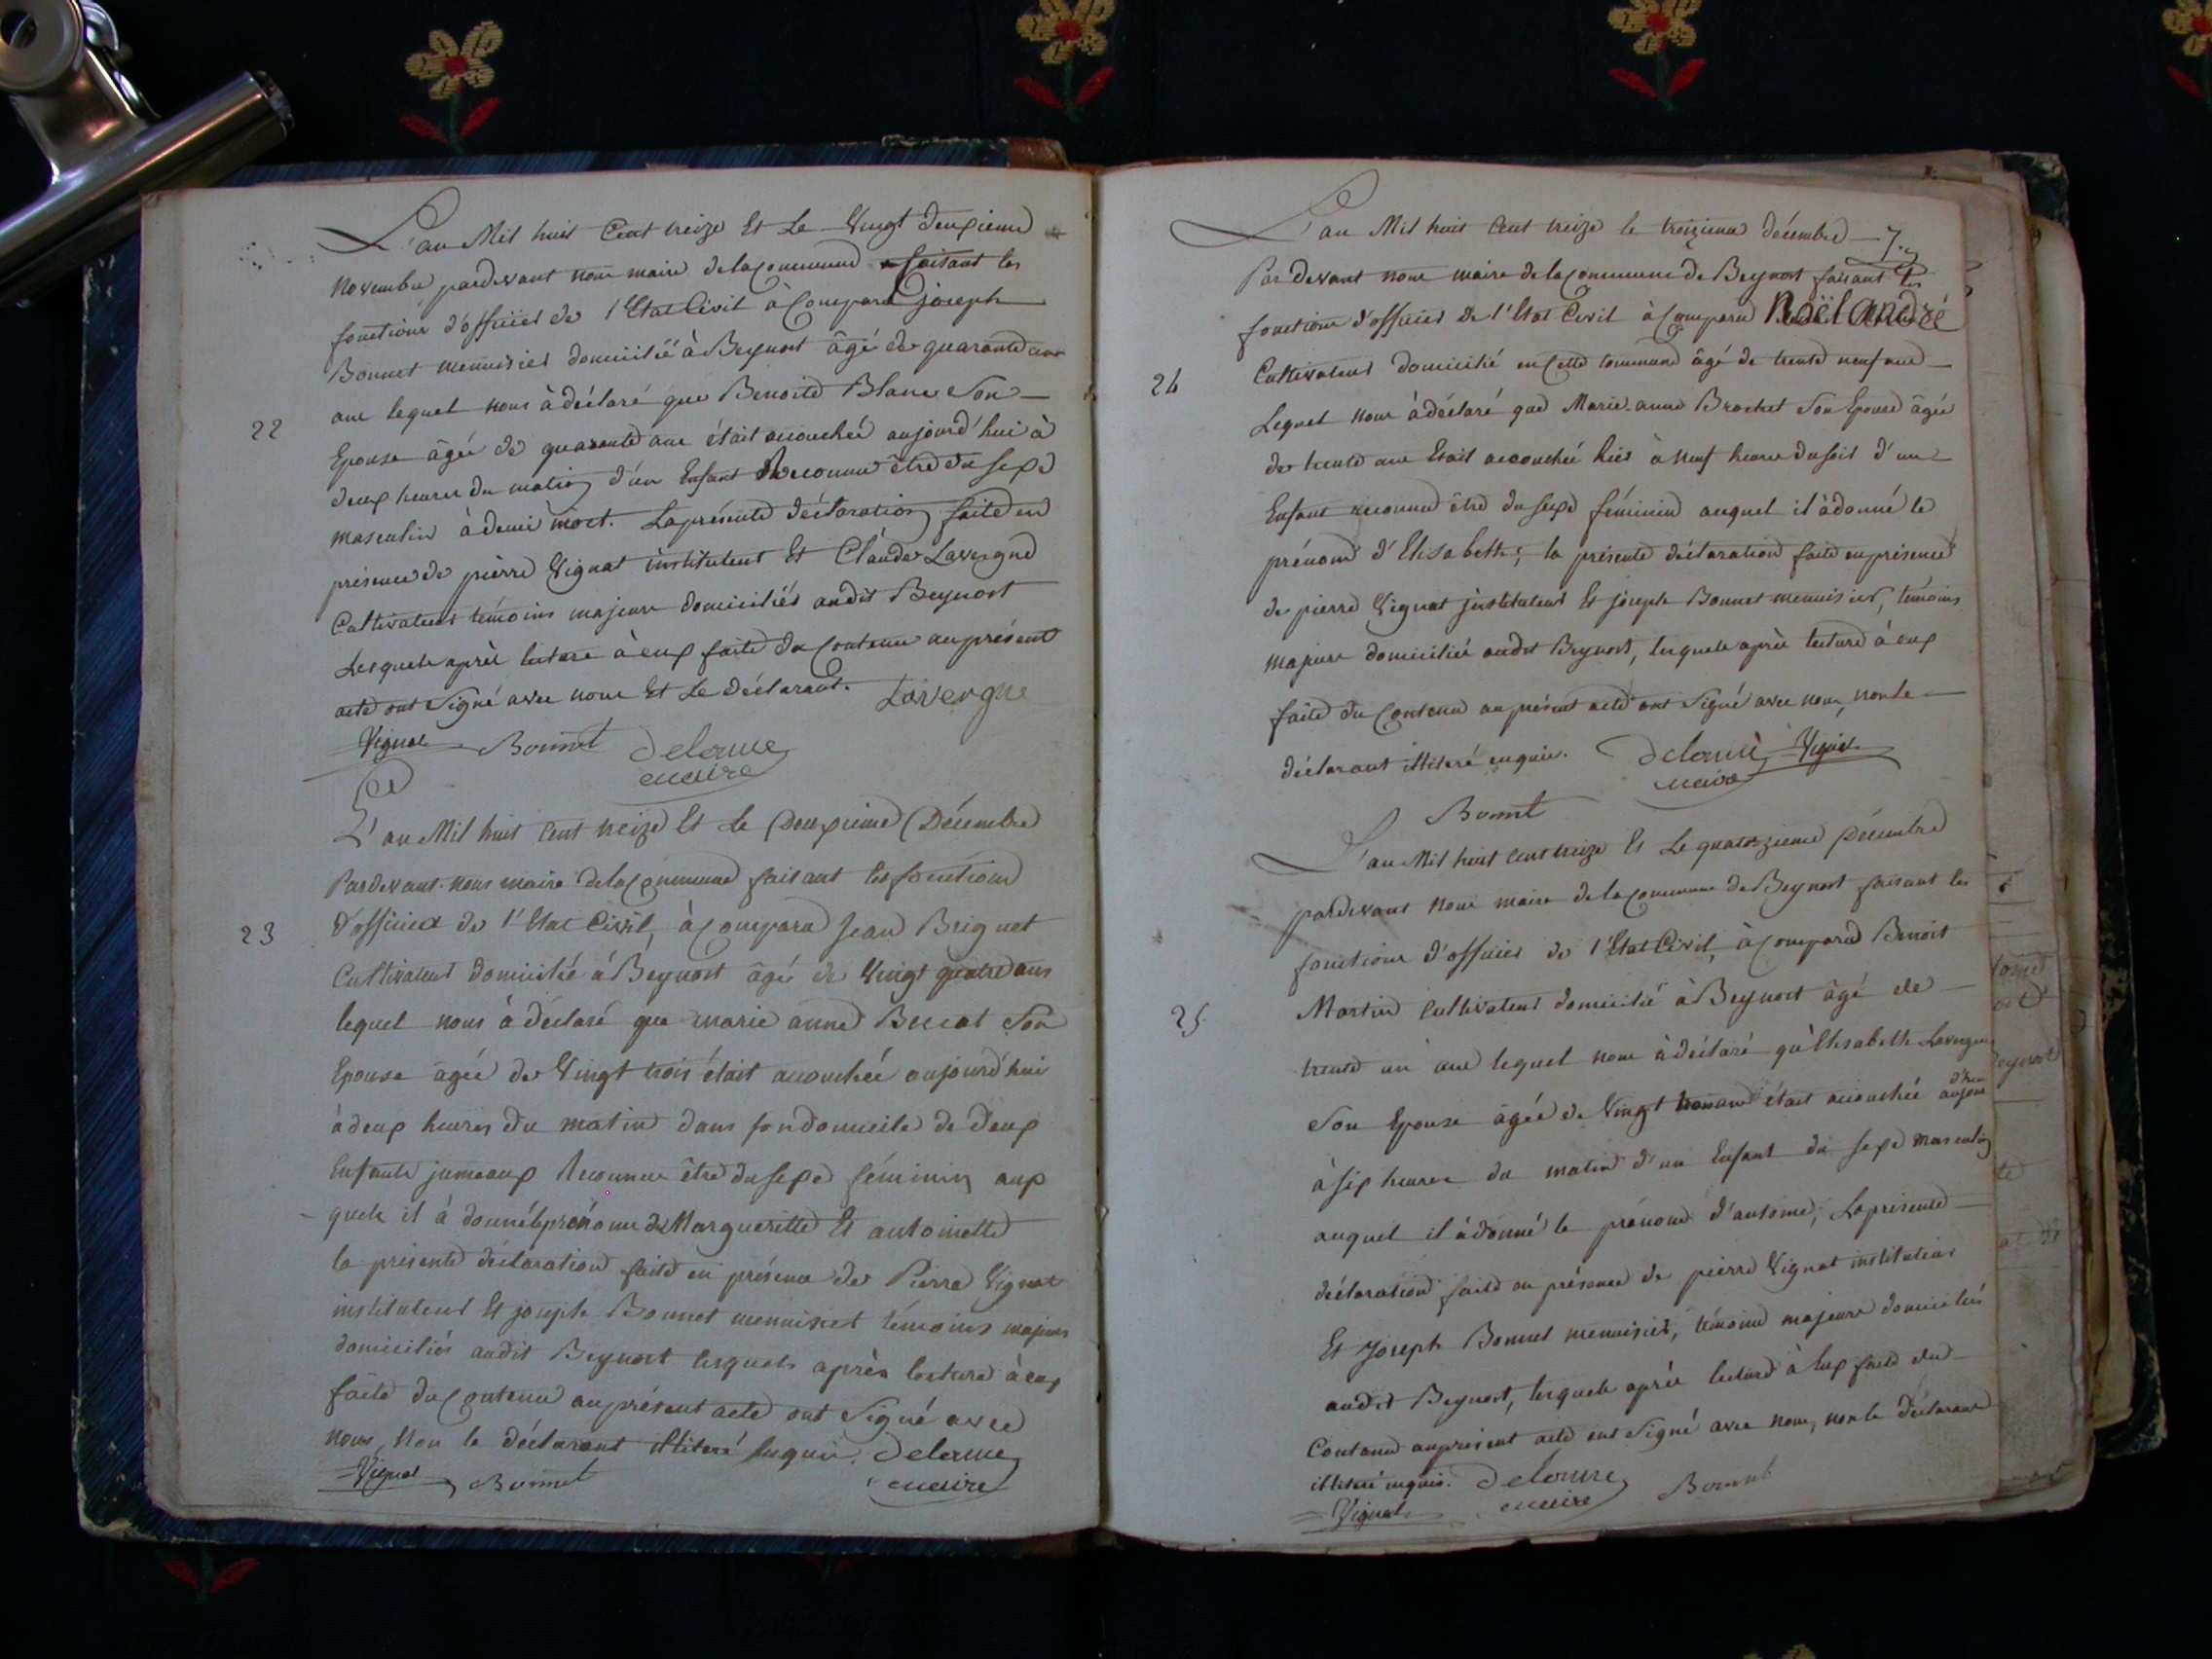 L'an Mil huit Cent treize Et Le Vingt deuxieme
Novembre pardevant nous maire dela Commune faisant les
fonctions d'officier de l'Etat Civil à Comparu joseph
Bonnet menuisier domicilié à Beynost âgé de quarante
ans lequel nous à déclaré que Benoite Blanc Son
22
Epouse âgée de quarante ans était accouchée aujourd'hui à
deux heures du matin d'un Enfant Reconnu être du sexe
masculin à demi mort. La présente déclaration faite en
présence de pierre Vignat instituteur Et Claude Lavergne
Cultivateur témoins majeurs domiciliés audit Beynost
Lesquels après lecture à eux faite du Contenu au présent
acte ont Signé avec nous Et Le déclarant. Lavergne
Vignat Bonnet Delorme
maire
L'an Mil huit Cent treize Et Le Deuxieme Décembre
Pardevant nous maire dela Commune faisant les fonctions
23
d'officier de l'Etat Civil, à Comparu Jean Brignet
Cultivateur domicilié à Beynost âgé de Vingt quatre ans
lequel nous à déclaré que marie anne Son
Epouse âgée de Vingt trois était accouchée aujourd'hui
à deux heures du matin dans son domicile de deux
Enfants jumeaux Reconnus être du sexe féminin aux
quels il à donné le prénoms de Margueritte Et antoinette
la présente déclaration faite en présence de Pierre Vignat
instituteur Et joseph Bonnet menuisier témoins majeurs
domiciliés audit Beynost lesquels après lecture à eux
faite du Contenu au présent acte ont Signé avec
nous, Non le déclarant illiteré Enquis. Delorme
Vignat Bonnet maire
L'an Mil huit Cent treize le treizieme décembre
Par devant nous maire de la Commune de Beynost faisant les
fonctions d'officier de l'Etat Civil à Comparu Noël André
24
Cultivateur domicilié en Cette Commune âgé de trente neuf ans
Lequel nous à déclaré que Marie-anne Brochet Son Epouse âgée
de trente ans Etait accouchée hier à neuf heures du soir d'un
Enfant reconnu être du sexe féminin auquel il à donné le
prénom d'Elisabeth; la présente déclaration faite en présence
de pierre Vignat jnstituteur Et joseph Bonnet menuisier, témoins
majeurs domiciliés audit Beynost, lesquels après lecture à eux
faite du Contenu au présent acte ont Signé avec nous, non le
déclarant illiteré enquis. Delorme Vignat
maire
Bonnet
L'an Mil huit Cent treize Et Le quatorzieme Décembre
pardevant nous maire de la Commune de Beynost faisant les
fonctions d'officier de l'Etat Civil, à Comparu Benoit
25
Martin Cultivateur domicilié à Beynost âgé de
trente un ans lequel nous à déclaré qu'Elisabeth Lavergne
Son Epouse âgée de Vingt était accouchée aujourd'hui
à six heures du matin d'un Enfant du sexe masculin
auquel il à donné le prénom d'antoine; La présente
déclaration faite en présence de pierre Vignat instituteur
Et Joseph Bonnet menuisier, témoins majeurs domiciliés
audit Beynost, lesquels après lecture à Eux faite du
Contenu au présent acte ont Signé avec nous, non le déclarant
illiteré enquis. Delorme Bonnet
Vignat maire